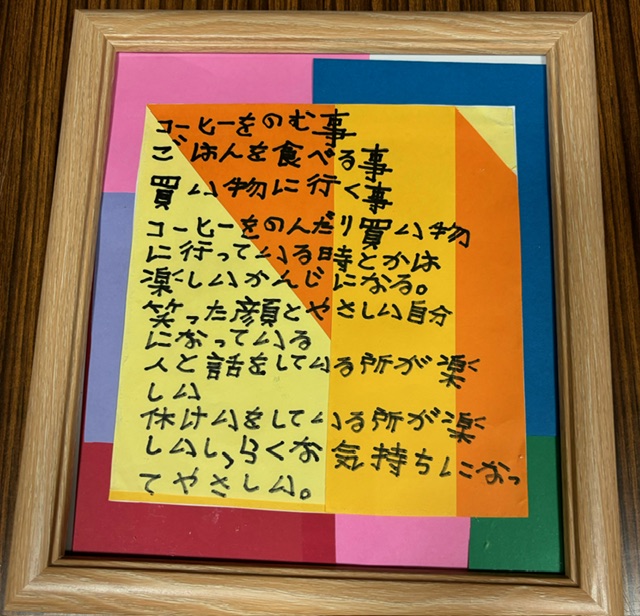 コーヒーをのむ事
ごはんを食べる事
買い物に行く事
コーヒーをのんだり買い物
に行っている時とかは
楽しいかんじになる。
笑った顔とやさしい自分
になっている
人と話をしている所が楽
しい
休けいをしている所が楽
しいしらくな気持ちになっ
てやさしい。